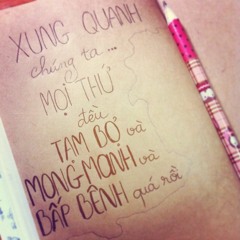 XUNG QUANH
chúng ta...
MỌI THỨ
đều
TẠM BỢ và
MONG MANH và
BẤP BÊNH quá rồi